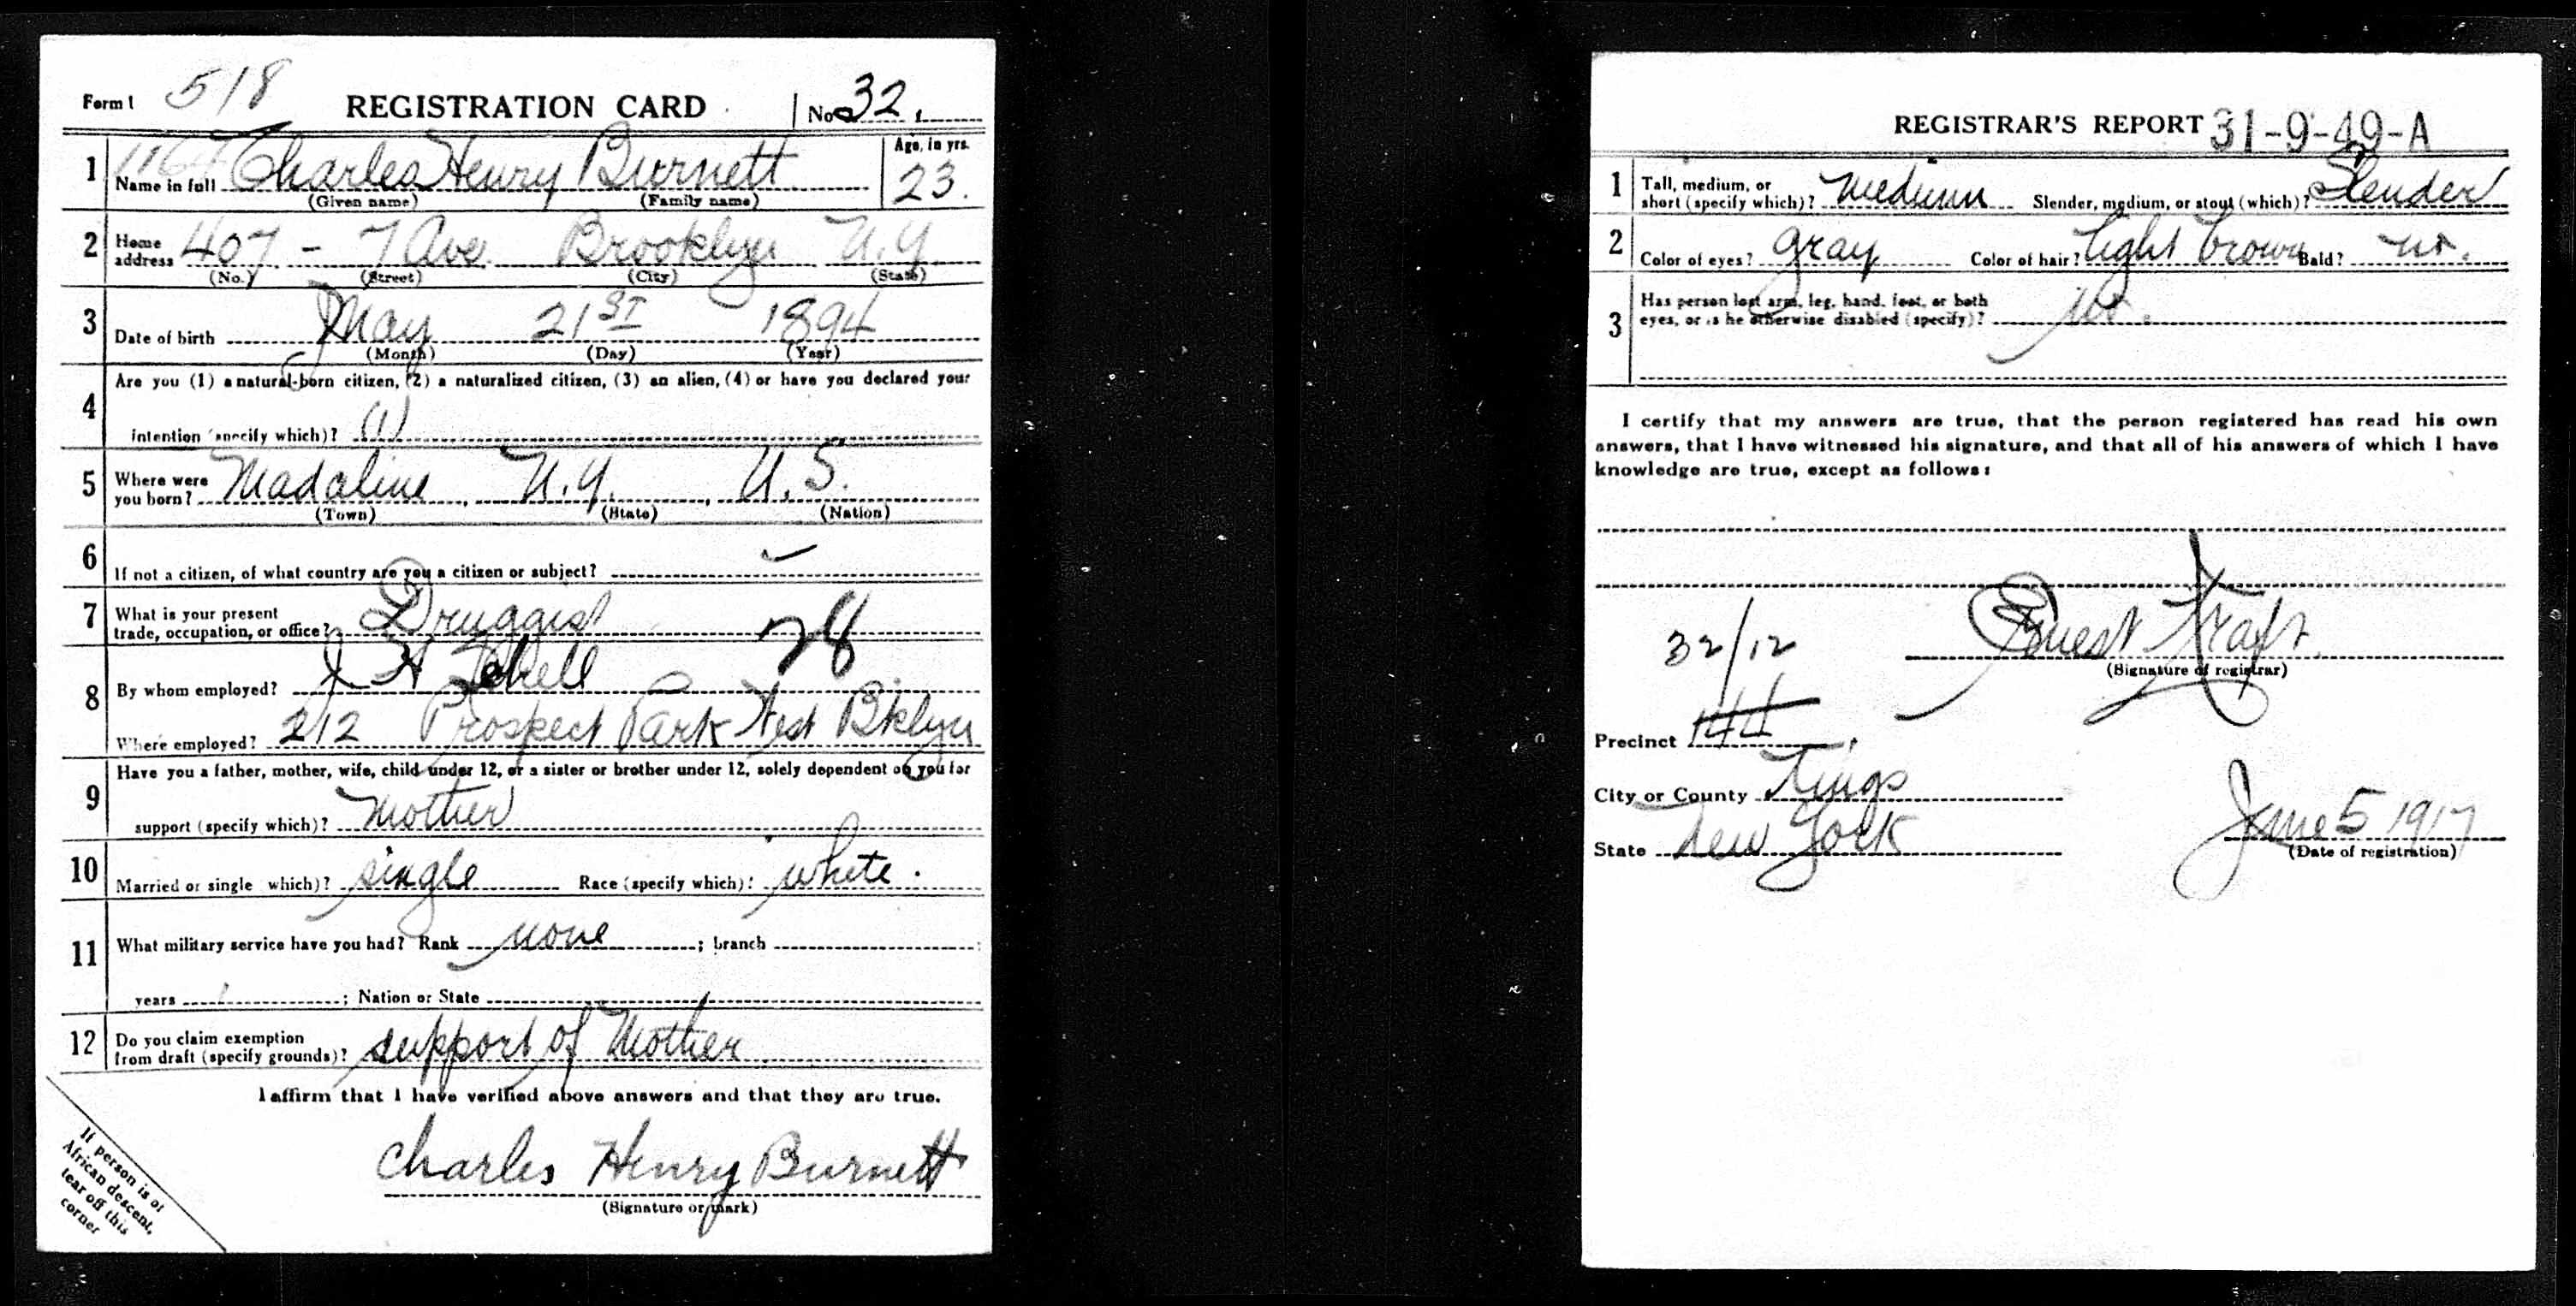 Form 1 518 REGISTRATION CARD No 32.
1 Name in full Charles Henry Burnett Age, in yrs. 23.
(Given name) (Family name)
2 Home address 407 - 7 Ave. Brooklyn N.Y.
(No.) (Street) (City) (State)
3 Date of birth May 21ST 1894
(Month) (Day) (Year)
4 Are you (1) a natural-born citizen, (2) a naturalized citizen, (3) an alien, (4) or have you declared your
intention (specify which)? (1)
5 Where were you born? Madaline, N.Y., U.S.
(Town) (State) (Nation)
6 If not a citizen, of what country are you a citizen or subject?
7 What is your present trade, occupation, or office? Druggist
8 By whom employed? J H
Where employed? 212 Prospect Park West Bklyn
9 Have you a father, mother, wife, child under 12, or a sister or brother under 12, solely dependent on you for
support (specify which)? Mother
10 Married or single (which)? single Race (specify which)? white.
11 What military service have you had? Rank none; branch
years ; Nation or State
12 Do you claim exemption from draft (specify grounds)? support of Mother
I affirm that I have verified above answers and that they are true.
Charles Henry Burnett
(Signature or mark)
If person is of
African descent,
tear off this
corner
REGISTRAR'S REPORT 31-9-49-A
1 Tall, medium, or short (specify which)? medium Slender, medium, or stout (which)? Slender
2 Color of eyes? gray Color of hair? light brown Bald? no.
3 Has person lost arm, leg, hand, foot, or both
eyes, or is he otherwise disabled (specify)? no.
I certify that my answers are true, that the person registered has read his own
answers, that I have witnessed his signature, and that all of his answers of which I have
knowledge are true, except as follows:
32/12 Ernest Kraft
(Signature of registrar)
Precinct 144
City or County Kings
State New York June 5 1917
(Date of registration)